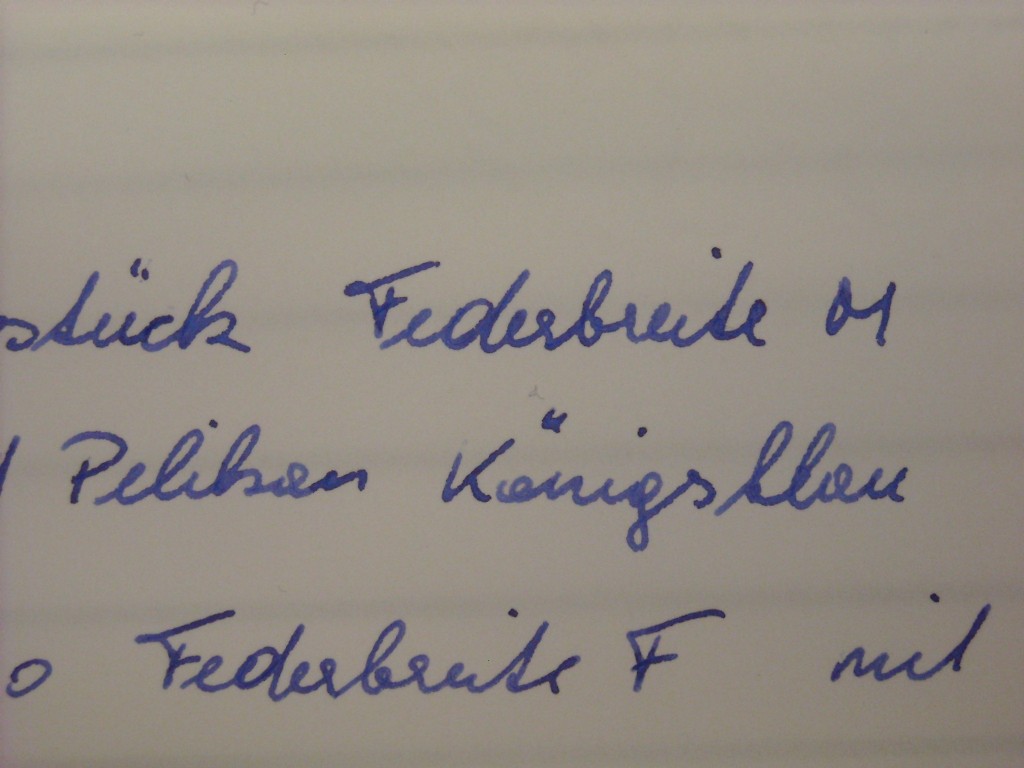 stück Federbreite M
Pelikan Königsblau
o Federbreite F mit